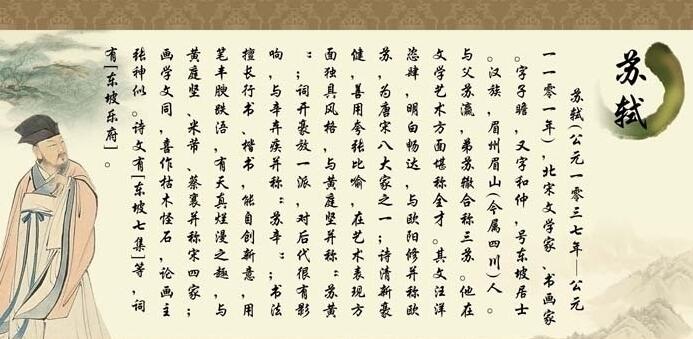 苏轼
苏轼(公元一零三七年—公元
一一零一年),北宋文学家、书画家
。字子瞻,又字和仲,号东坡居士
。汉族,眉州眉山(今属四川)人。
与父苏瀛,弟苏合称三苏。他在
文学艺术方面堪称全才。其文汪洋
恣肆,明白畅达,与欧阳修并称欧
苏,为唐宋八大家之一;诗清新豪
健,善用夸张比喻,在艺术表现方
面独具风格,与黄庭坚并称“苏黄
”;词开豪放一派,对后代很有影
响,与辛弃疾并称“苏辛”;书法
擅长行书、楷书,能自创新意,用
笔丰腴跌,有天真烂漫之趣,与
黄庭坚、米芾、蔡襄并称宋四家;
画学文同,喜作枯木怪石,论画主
张神似。诗文有[东坡七集]等,词
有[东坡乐府]。